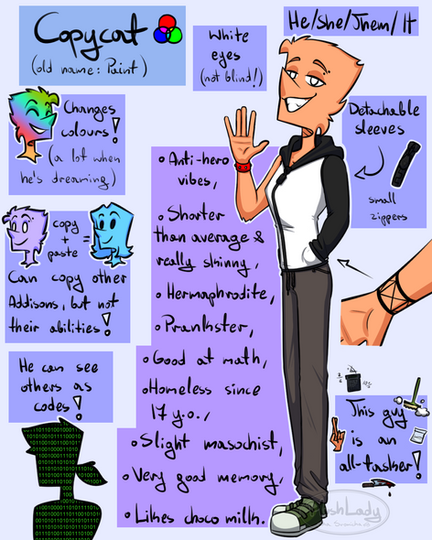 Copycat
(old name: Paint)
White
eyes
(not blind!)
He/She/Them/It
Changes
colours!
(a lot when
he's dreaming)
Detachable
sleeves
small
zippers
copy
+
paste
=
Can copy other
Addisons, but not
their abilities!
• Anti-hero
vibes,
• Shorter
than average &
really skinny,
• Hermaphrodite,
• Prankster,
• Good at math,
• Homeless since
17 y.o.,
• Slight masochist,
• Very good memory,
• Likes choco milk.
He can see
others as
codes!
This guy
is an
all-tasker!